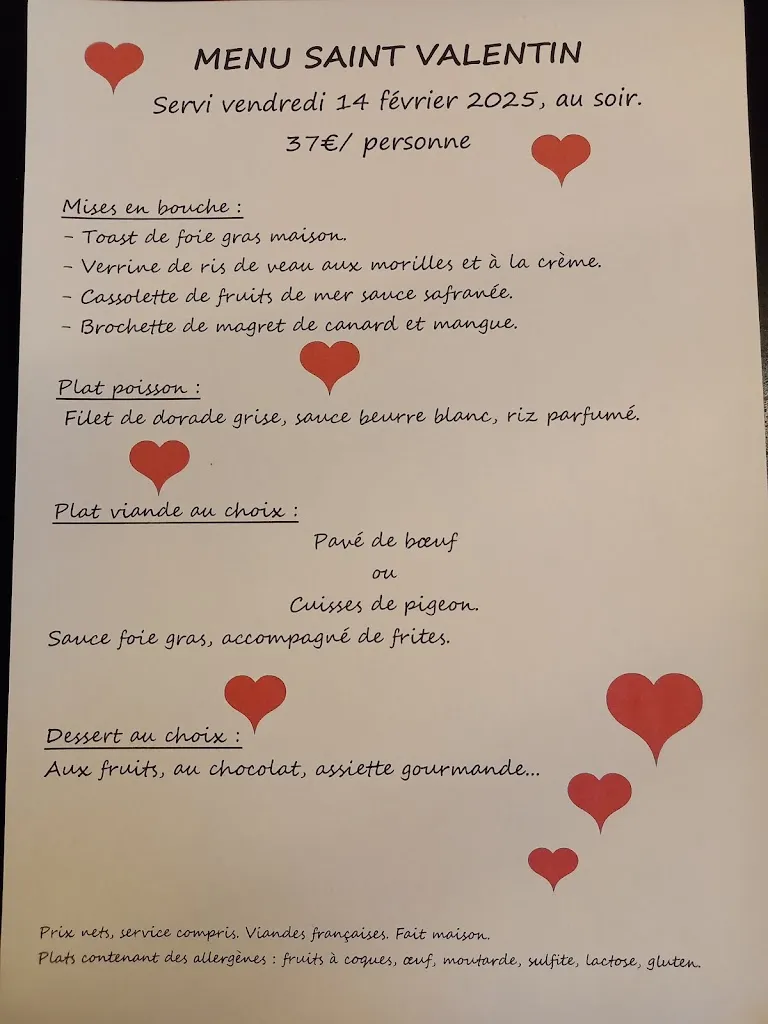 MENU SAINT VALENTIN
Servi vendredi 14 février 2025, au soir.
37€/ personne
Mises en bouche :
- Toast de foie gras maison.
- Verrine de ris de veau aux morilles et à la crème.
- Cassolette de fruits de mer sauce safranée.
- Brochette de magret de canard et mangue.
Plat poisson :
Filet de dorade grise, sauce beurre blanc, riz parfumé.
Plat viande au choix :
Pavé de bœuf
ou
Cuisses de pigeon.
Sauce foie gras, accompagné de frites.
Dessert au choix :
Aux fruits, au chocolat, assiette gourmande...
Prix nets, service compris. Viandes françaises. Fait maison.
Plats contenant des allergènes : fruits à coques, œuf, moutarde, sulfite, lactose, gluten.